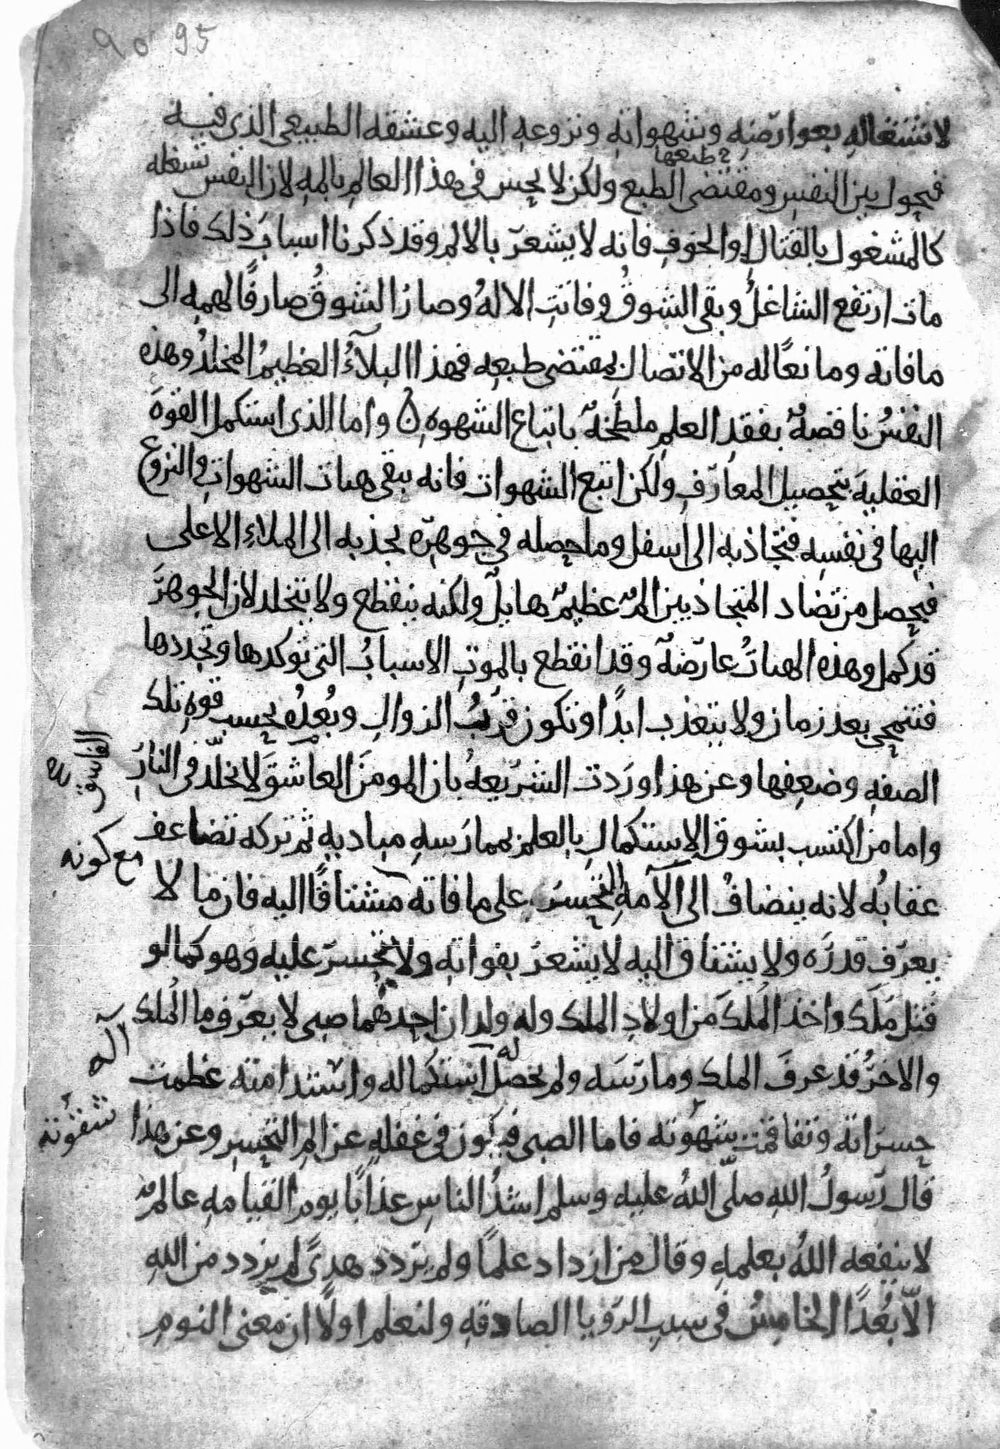 ٩٥ 95
لاشتغاله بعوارضه وشهواته ونزوعه اليه وعشقه الطبيعي الذي فيه
طبعها
فيحول بين النفس ومقتضى الطبع ولكن لا يحس في هذا العالم بالمه لان النفس تشغله
كالمشغول بالقتال او الخوف فانه لا يشعر بالالم وقد ذكرنا اسباب ذلك فاذا
مات ارتفع الشاغل وبقي الشوق وفاتت الاله وصار الشوق صارفا لهمه الى
ما فاته ومانعا له من الاتصال بمقتضى طبعه فهذا البلاء العظيم المخلد وهذه
النفس ناقصة بفقد العلم ملطخة باتباع الشهوه واما الذي استكمل القوه
العقليه بتحصيل المعارف ولكن اتبع الشهوات فانه يبقى هيات الشهوات والنزوع
اليها في نفسه فتجاذبه الى اسفل وما حصله في جوهره يجذبه الى الملاء الاعلى
فيحصل من تضاد المتجاذبين الم عظيم هايل ولكنه ينقطع ولا يتخلد لان الجوهر
قد كمل وهذه الهيات عارضة وقد انقطع بالموت الاسباب التي توكدها وتجددها
فتنمحي بعد زمان ولا يتعذب ابدا وتكون قرب الزوال وبعده بحسب قوه تلك
الصفه وضعفها وعن هذا وردت الشريعه بان المومن العاشق لا يخلد في النار
الفاسق صح
واما من اكتسب بشوق الاستكمال بالعلم بممارسه مباديه ثم تركه تضاعف
عقابه لانه ينضاف الى الآمه التحسر على ما فاته مشتاقا اليه فان ما لا
مع كونه
يعرف قدره ولا يشتاق اليه لا يشعر بفواته ولا يتحسر عليه وهو كما لو
قتل ملك واخذ الملك من اولاد الملك وله ولدان احدهما صبي لا يعرف ما الملك
والاخر قد عرف الملك ومارسه ولم يحصل له استكماله واشتدا منته عظمت
آله
حسراته وتفاقمت شهوته فاما الصبي فيكون في غفله عن الم التحسر وعن هذا
شقوته
قال رسول الله صلى الله عليه وسلم اشد الناس عذابا يوم القيامه عالم
لا ينفعه الله بعلمه وقال من ازداد علما ولم يزدد هدى لم يزدد من الله
الا بعدا الخامس في سبب الرويا الصادقه ولنعلم اولا ان معنى النوم